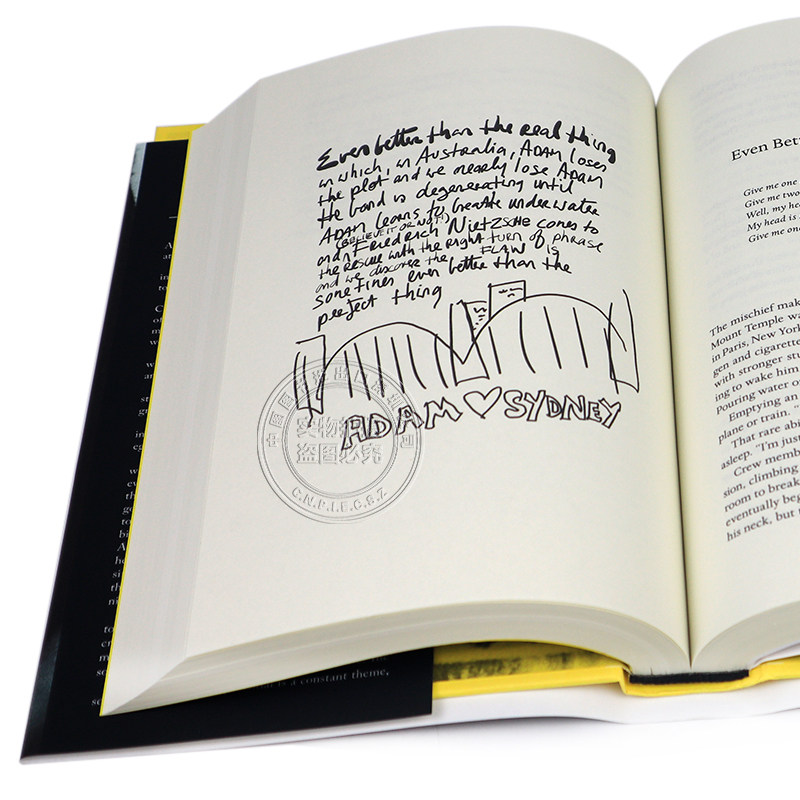 Even better than the real thing
in which, in Australia, ADAM loses
the plot and we nearly lose ADAM
the band is degenerating until
ADAM learns to breathe underwater
(BELIEVE IT OR NOT)
and Friedrich Nietzsche comes to
the rescue with the right turn of phrase
and we discover the FLAW is
sometimes even better than the
perfect thing
ADAM ♡ SYDNEY
实物拍摄
盗图必究
C.N.P.I.E.C.S.Z
is a constant theme,
Even Bet
Give me one
Give me two
Well, my hea
My head is
Give me one
The mischief mak
Mount Temple wa
in Paris, New York
gen and cigarette
with stronger stu
ing to wake him
Pouring water o
Emptying an
plane or train. "
That rare abi
asleep. "I'm just
Crew memb
sion, climbing
room to break
eventually beg
his neck, but